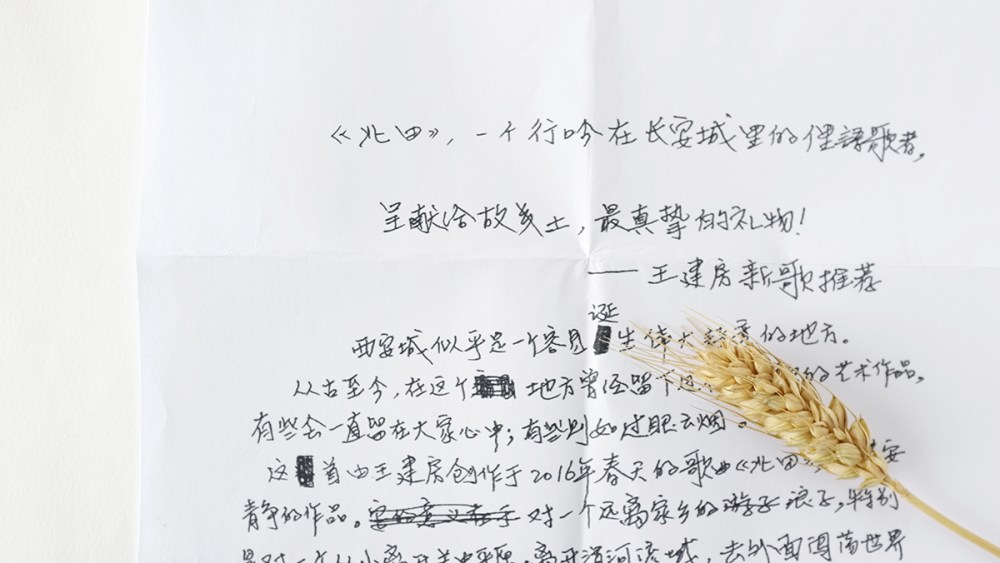 《北田》，一个行吟在长安城里的俚語歌者，
呈献给故乡土，最真挚的礼物！
—— 王建房新歌推荐
西安城似乎是一个容易诞生伟大 的地方。
从古至今，在这个 地方曾经留下 的艺术作品，
有些会一直留在大家心中；有些则如过眼云烟。
这首由王建房创作于2016年春天的歌曲《北田》， 安
静的作品。 对一个远离家乡的游子浪子，特别
是对一个从小离开关中平原，离开渭河 ，去外面闯荡世界